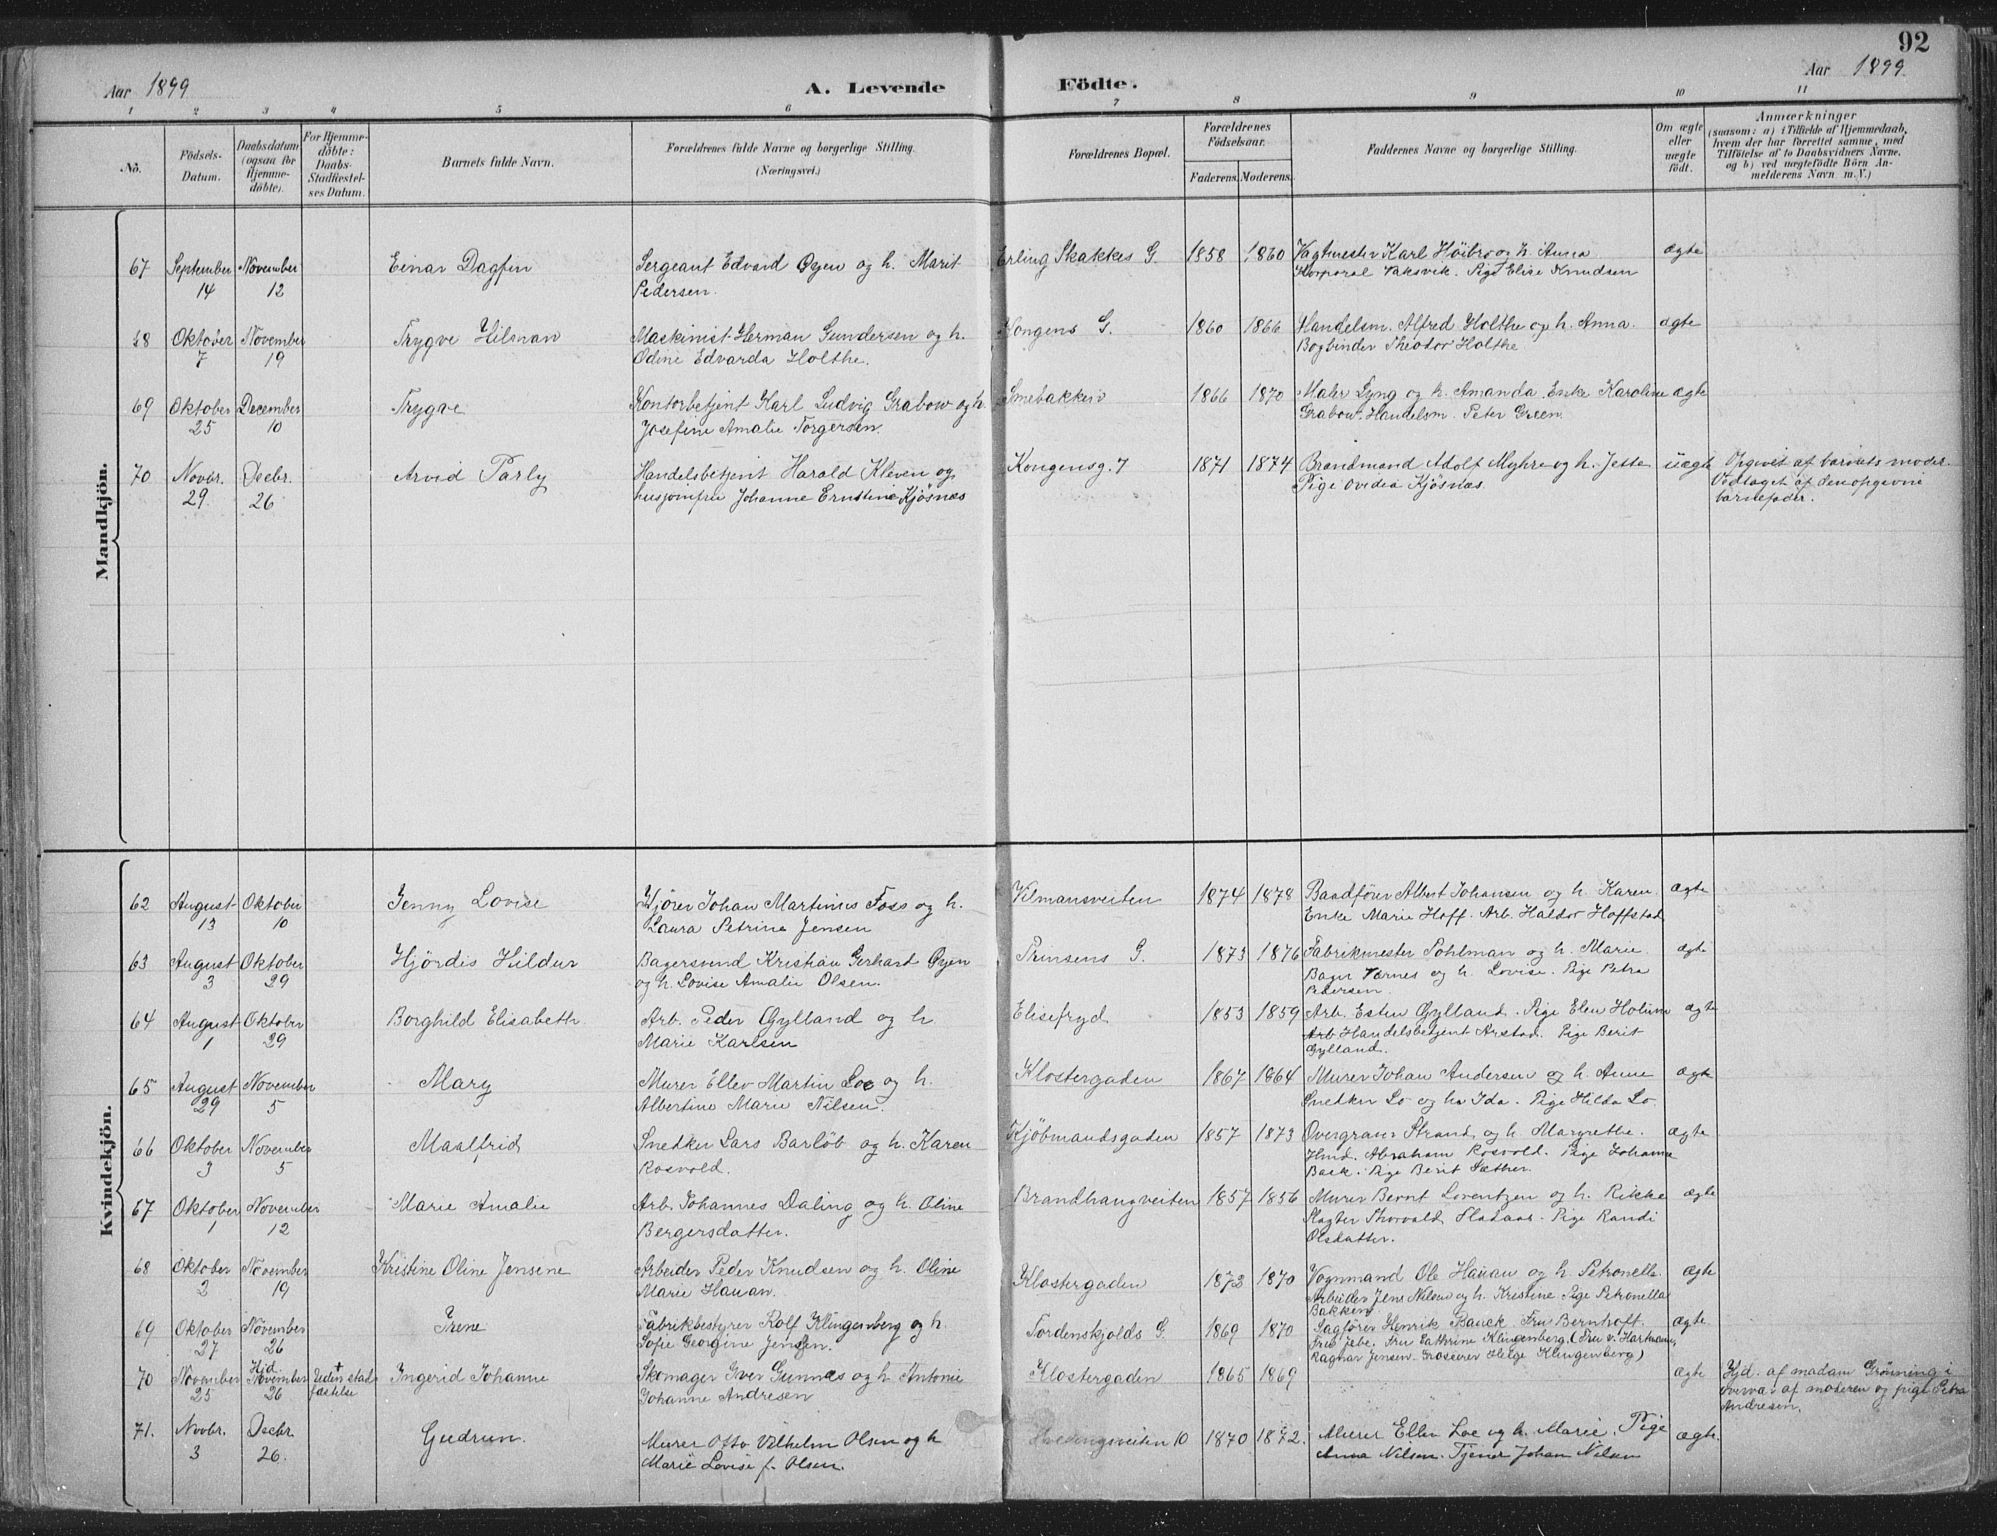 92
Aar 1899
A. Levende Födte.
Aar 1899.
1 2 3 4 5 6 7 8 9 10 11
No.
Födsels-Datum.
Daabsdatum (ogsaa for Hjemme-döbte).
For Hjemme-döbte: Daabs-Stadfæstel-ses Datum.
Barnets fulde Navn.
Forældrenes fulde Navne og borgerlige Stilling. (Næringsvei.)
Forældrenes Bopæl.
Forældrenes Födselsaar.
Faderens. Moderens.
Faddernes Navne og borgerlige Stilling.
Om ægte eller uægte födt.
Anmærkninger (saasom: a) i Tilfælde af Hjemmedaab, hvem der har forrettet samme, med Tilföielse af to Daabsvidners Navne, og b) ved uægtefödte Börn An-melderens Navn m. V.)
Mandkjön.
67 September 14 November 12 Einar Dagfin Sergeant Edvard Øyen og h. Marit Pedersen. Erling Skakkes G. 1858 1860 Vagtmester Karl Höibro og h. Anna Korporal Vaksvik. Pige Elise Knudsen ægte
68 Oktober 7 November 19 Trygve Hilman Maskinist Herman Gundersen og h. Odine Edvarda Holthe. Kongens G. 1860 1866 Handelsm. Alfred Holthe og h. Anna. Bogbinder Theodor Holthe ægte
69 Oktober 25 December 10 Trygve Kontorbetjent Karl Ludvig Grabow og h. Josefine Amalie Torgersen. Smebakken 1866 1870 Maler Lyng og h. Amanda. Enke Karoline Grabow. Handelsm. Peter Green. ægte
70 Novbr. 29 Decbr. 26 Arvid Parly Handelsbetjent Harald Kleven og husjomfru Johanne Ernstine Kjösnæs Kongensg. 7 1871 1874 Brandmand Adolf Myhre og h. Jette Pige Ovedia Kjösnæs. uægte Opgivet af barnets moder. Vedtaget af den opgivne barnefader.
Kvindekjön.
62 August 13 Oktober 10 Jenny Lovise Kjörer Johan Martinius Foss og h. Laura Petrine Jensen Vilmansveiten 1874 1878 Baadförer Albert Johansen og h. Karen. Enke Marie Hoff. Arb. Haldor Hoffstad ægte
63 August 3 Oktober 29 Hjördis Hildur Bagersvend Kristian Gerhart Øyen og h. Lovise Amalie Olsen. Prinsens G. 1873 1876 Fabrikmester Pohlman og h. Marie Bager Værnes og h. Lovise. Pige Petra Pedersen. ægte
64 August 1 Oktober 29 Borghild Elisabeth Arb. Peder Gylland og h. Marie Karlsen Elisefryd 1853 1859 Arb. Esten Gylland. Pige Elen Holum Arb. Handelsbetjent Arstad. Pige Berit Gylland. ægte
65 August 29 November 5 Mary Murer Ellev Martin Loe og h. Albertine Marie Nilsen. Klostergaden 1867 1864 Murer Johan Andersen og h. Anne Snedker Lo og h. Ida. Pige Hilda Lo. ægte
66 Oktober 3 November 5 Maalfrid Snedker Lars Barlöb og h. Karen Rosvold. Kjöbmandsgaden 1857 1873 Overgraver Strand og h. Margrethe. Hmd. Abraham Rosvold. Pige Johanna Back. Pige Berit Sæther. ægte
67 Oktober 1 November 12 Marie Amalie Arb. Johannes Daling og h. Oline Bergersdatter. Brandhaugveiten 1857 1856 Murer Bernt Lorentzen og h. Rikke Slagter Thorvald Pige Randi Olsdatter. ægte
68 Oktober 2 November 19 Kristine Oline Jensine Arbeider Peder Knudsen og h. Oline Marie Hauan. Klostergaden 1873 1870 Vognmand Ole Hauan og h. Petronelle. Arbeider Jens Nilsen og h. Kristine. Pige Petronella Bakken. ægte
69 Oktober 27 November 26 Irene Fabrikbestyrer Rolf Klingenberg og h. Sofie Georgine Jensen. Tordenskjolds G. 1869 1870 Sagförer Henrik Bauck. Fru Bernhoft. Fru Fru Cathrine Klingenberg. (Fru v. Hartmann, Ragnar Jensen. Grosserer Helge Klingenberg) ægte
70 November 25 Hjd. November 26 + Uden stadfæstelse Ingerid Johanne Skomager Iver Gunnæs og h. Antonie Johanne Andresen Klostergaden 1865 1869 ægte Hjd. af madam Grönning i nærvær af moderen og pige Petra Andresen.
71. Novbr. 3 Decbr. 26. Gudrun. Murer Otto Vilhelm Olsen og h. Marie Lovise f. Olsen. 10 1870 1872. Murer Ellev Loe og h. Marie. Pige Anna Nilsen. Tjener Johan Nilsen ægte.